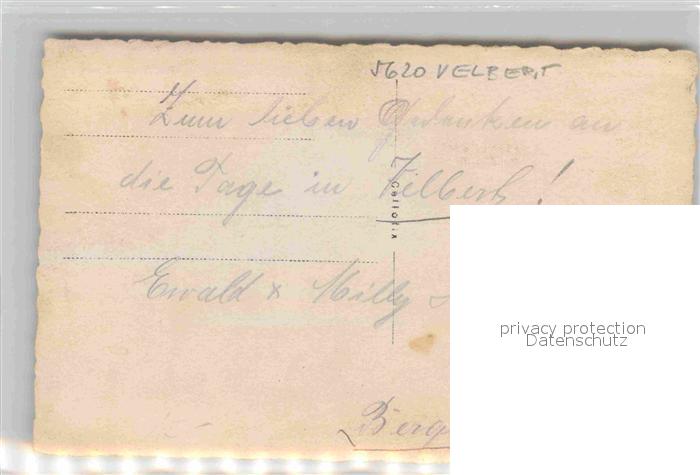 5620 VELBERT
Zum lieben Gedenken an
die Tage in Velbert!
Cellofix
Ewald & Milly
Berg
privacy protection
Datenschutz